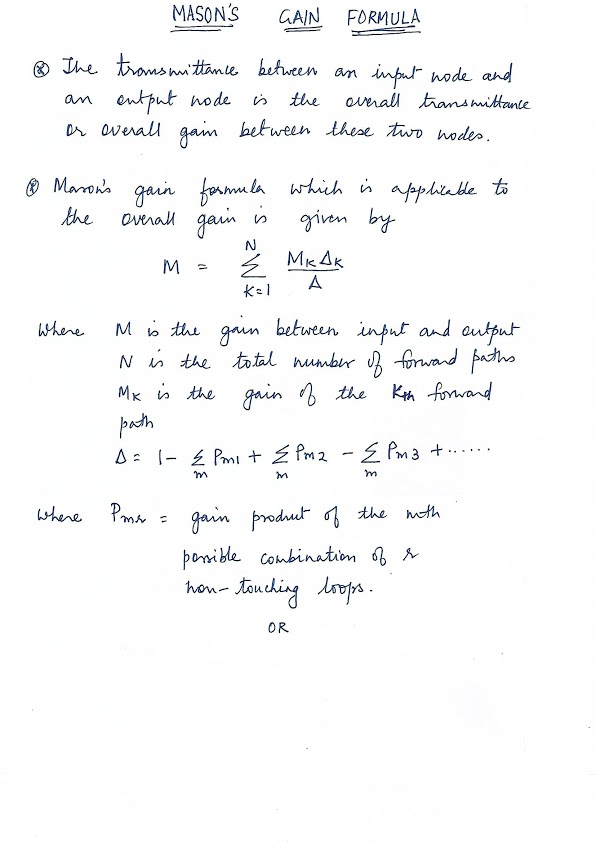 MASON'S GAIN FORMULA
⊛ The transmittance between an input node and
an output node is the overall transmittance
or overall gain between these two nodes.
⊛ Mason's gain formula which is applicable to
the overall gain is given by
M = N∑K=1 MK ΔK / Δ
Where M is the gain between input and output
N is the total number of forward paths
MK is the gain of the Kth forward
path
Δ = 1 - ∑m Pm1 + ∑m Pm2 - ∑m Pm3 + ......
Where Pmr = gain product of the mth
possible combination of r
non-touching loops.
OR